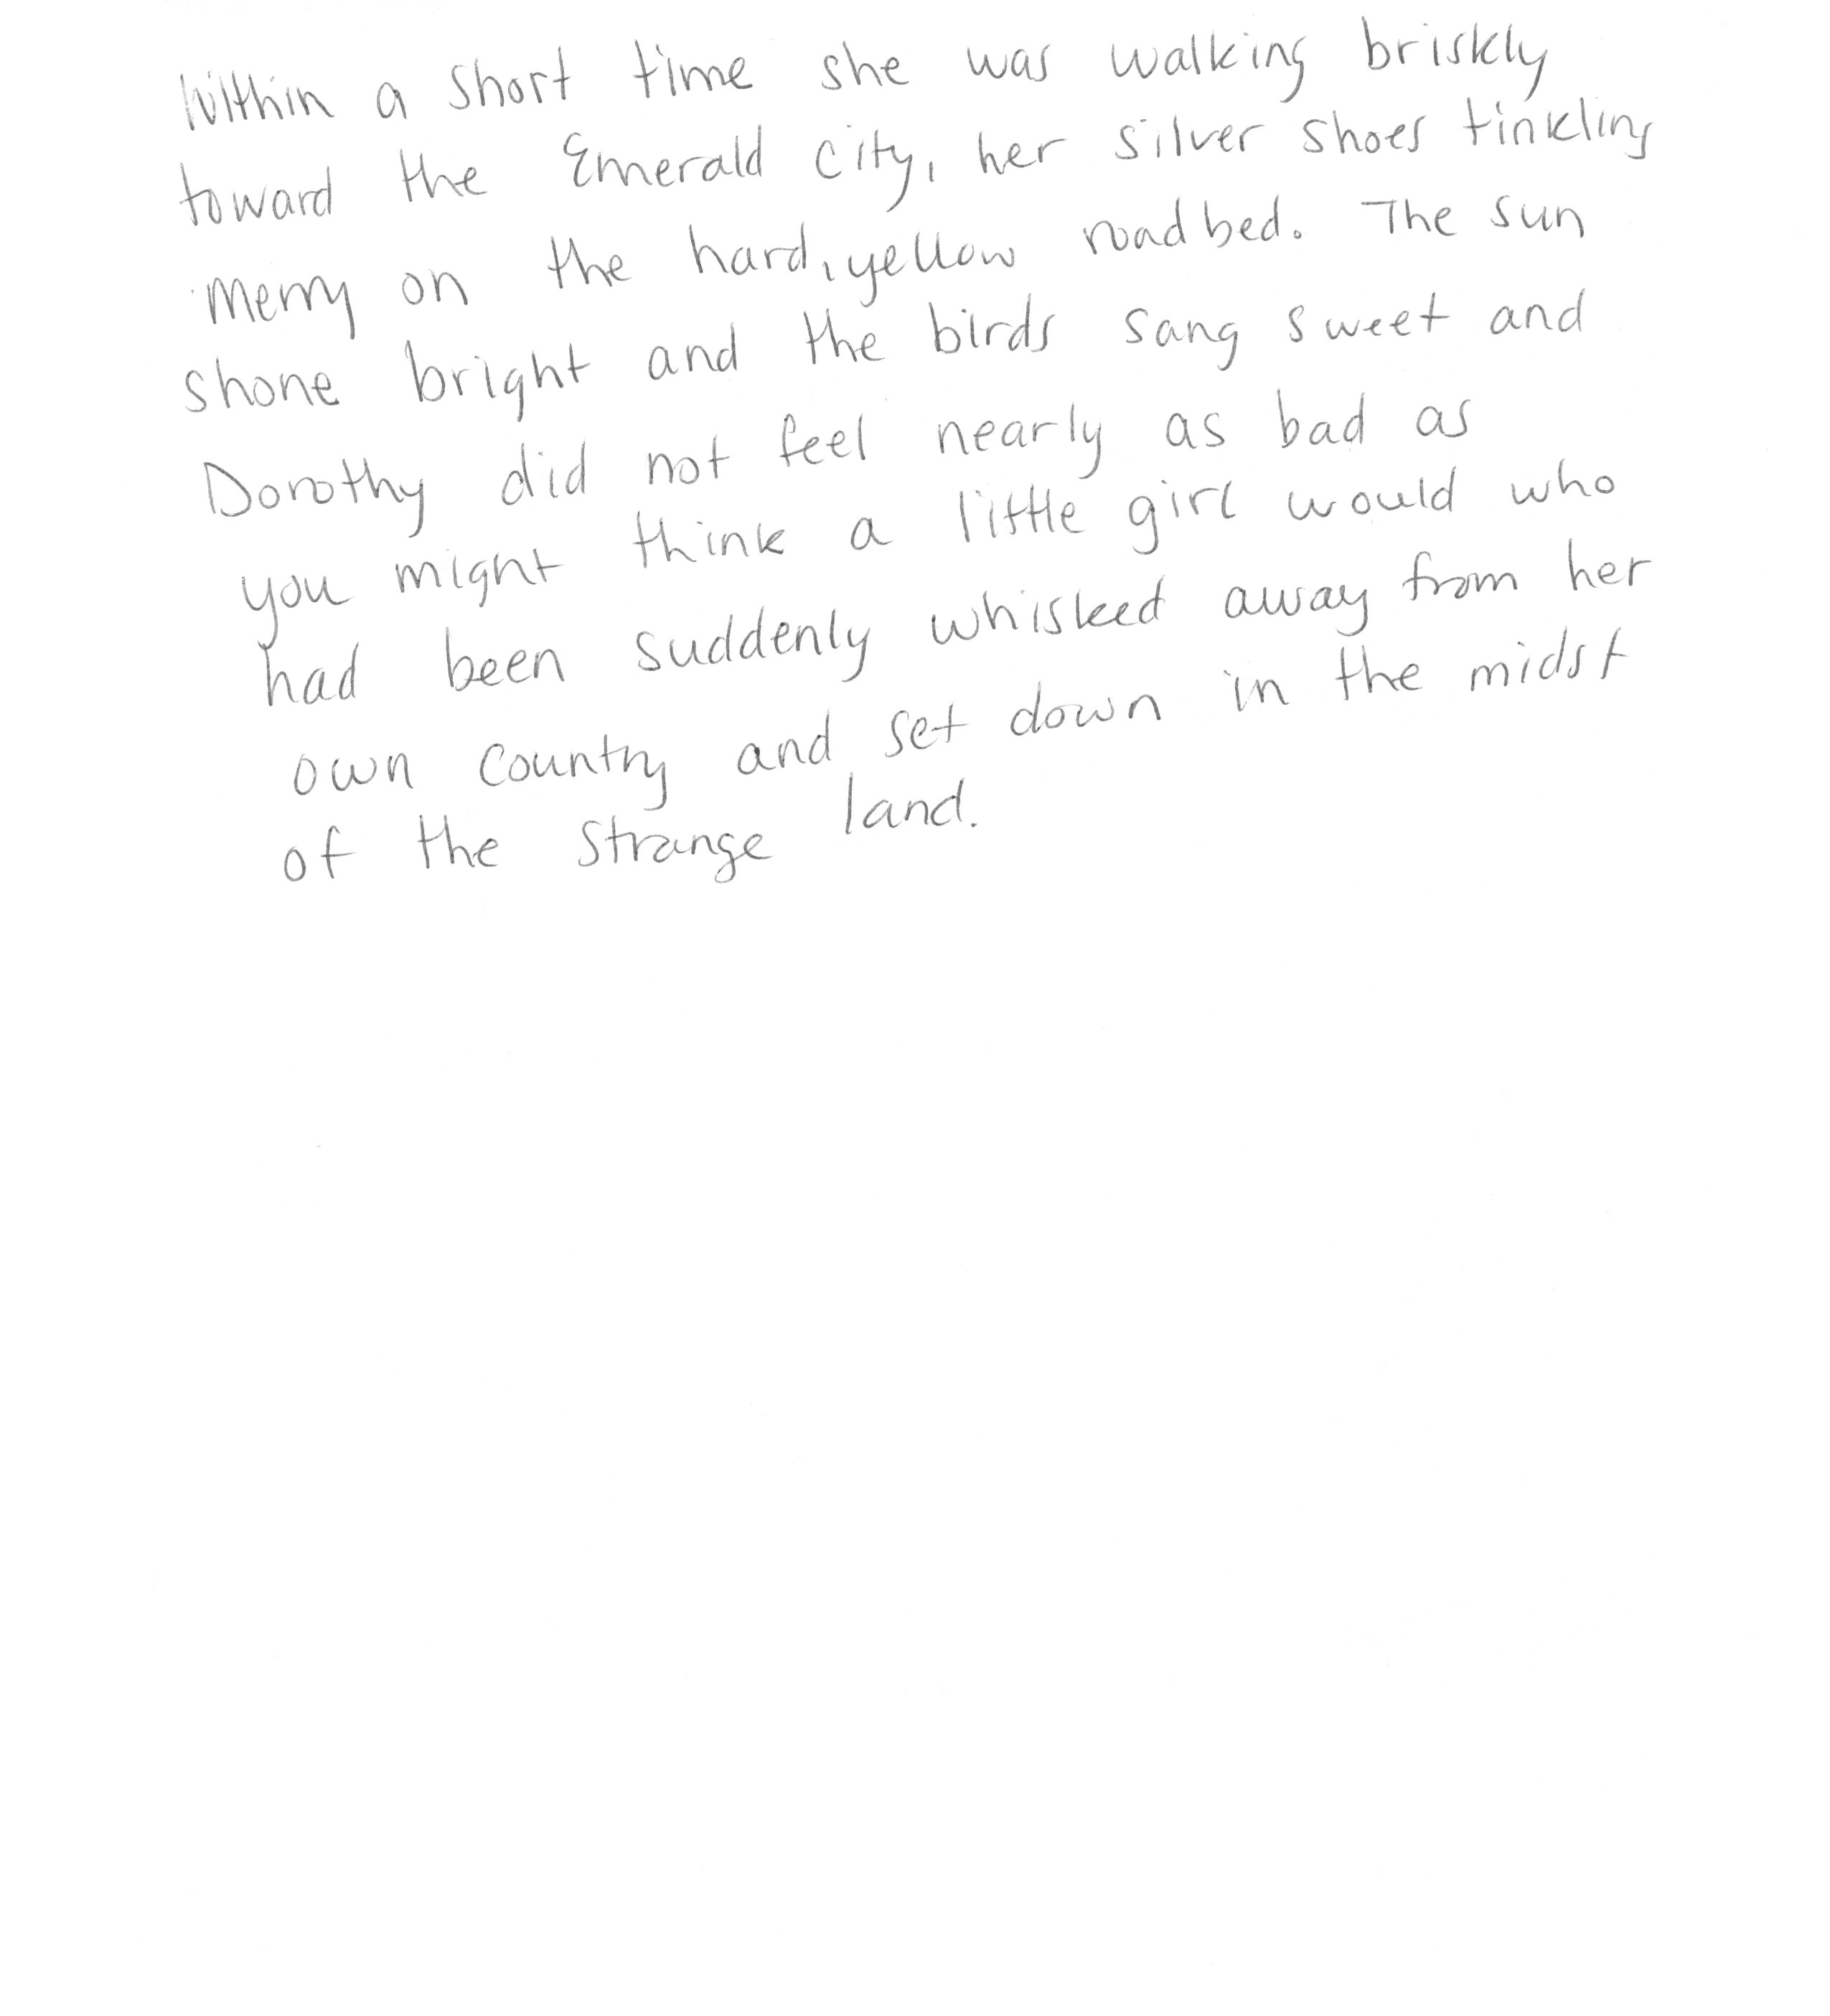 Within a short time she was walking briskly
toward the Emerald City, her silver shoes tinkling
merry on the hard, yellow roadbed. The sun
shone bright and the birds sang sweet and
Dorothy did not feel nearly as bad as
you might think a little girl would who
had been suddenly whisked away from her
own country and set down in the midst
of the strange land.